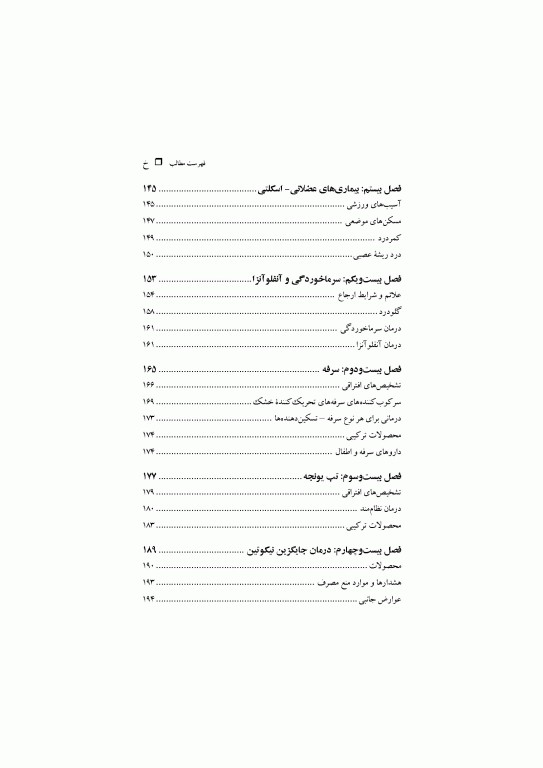 فهرست مطالب ❒ خ
فصل بیستم: بیماری‌های عضلانی- اسکلتی ..................................... ۱۴۵
آسیب‌های ورزشی ........................................................................... ۱۴۵
مسکن‌های موضعی .......................................................................... ۱۴۷
کمردرد ...................................................................................... ۱۴۹
درد ریشهٔ عصبی .............................................................................. ۱۵۰
فصل بیست‌ویکم: سرماخوردگی و آنفلوآنزا .................................... ۱۵۳
علائم و شرایط ارجاع ....................................................................... ۱۵۴
گلودرد ........................................................................................ ۱۵۸
درمان سرماخوردگی ........................................................................ ۱۶۱
درمان آنفلوآنزا ............................................................................... ۱۶۱
فصل بیست‌ودوم: سرفه ................................................................ ۱۶۵
تشخیص‌های افتراقی ......................................................................... ۱۶۶
سرکوب‌کننده‌های سرفه‌های تحریک‌کنندهٔ خشک ...................................... ۱۶۹
درمانی برای هر نوع سرفه – تسکین‌دهنده‌ها .............................................. ۱۷۳
محصولات ترکیبی ........................................................................... ۱۷۴
داروهای سرفه و اطفال ...................................................................... ۱۷۴
فصل بیست‌وسوم: تب یونجه ......................................................... ۱۷۷
تشخیص‌های افتراقی ......................................................................... ۱۷۹
درمان نظام‌مند ................................................................................ ۱۸۰
محصولات ترکیبی ........................................................................... ۱۸۳
فصل بیست‌وچهارم: درمان جایگزین نیکوتین .................................. ۱۸۹
محصولات .................................................................................... ۱۹۰
هشدارها و موارد منع مصرف ............................................................... ۱۹۳
عوارض جانبی ................................................................................ ۱۹۴